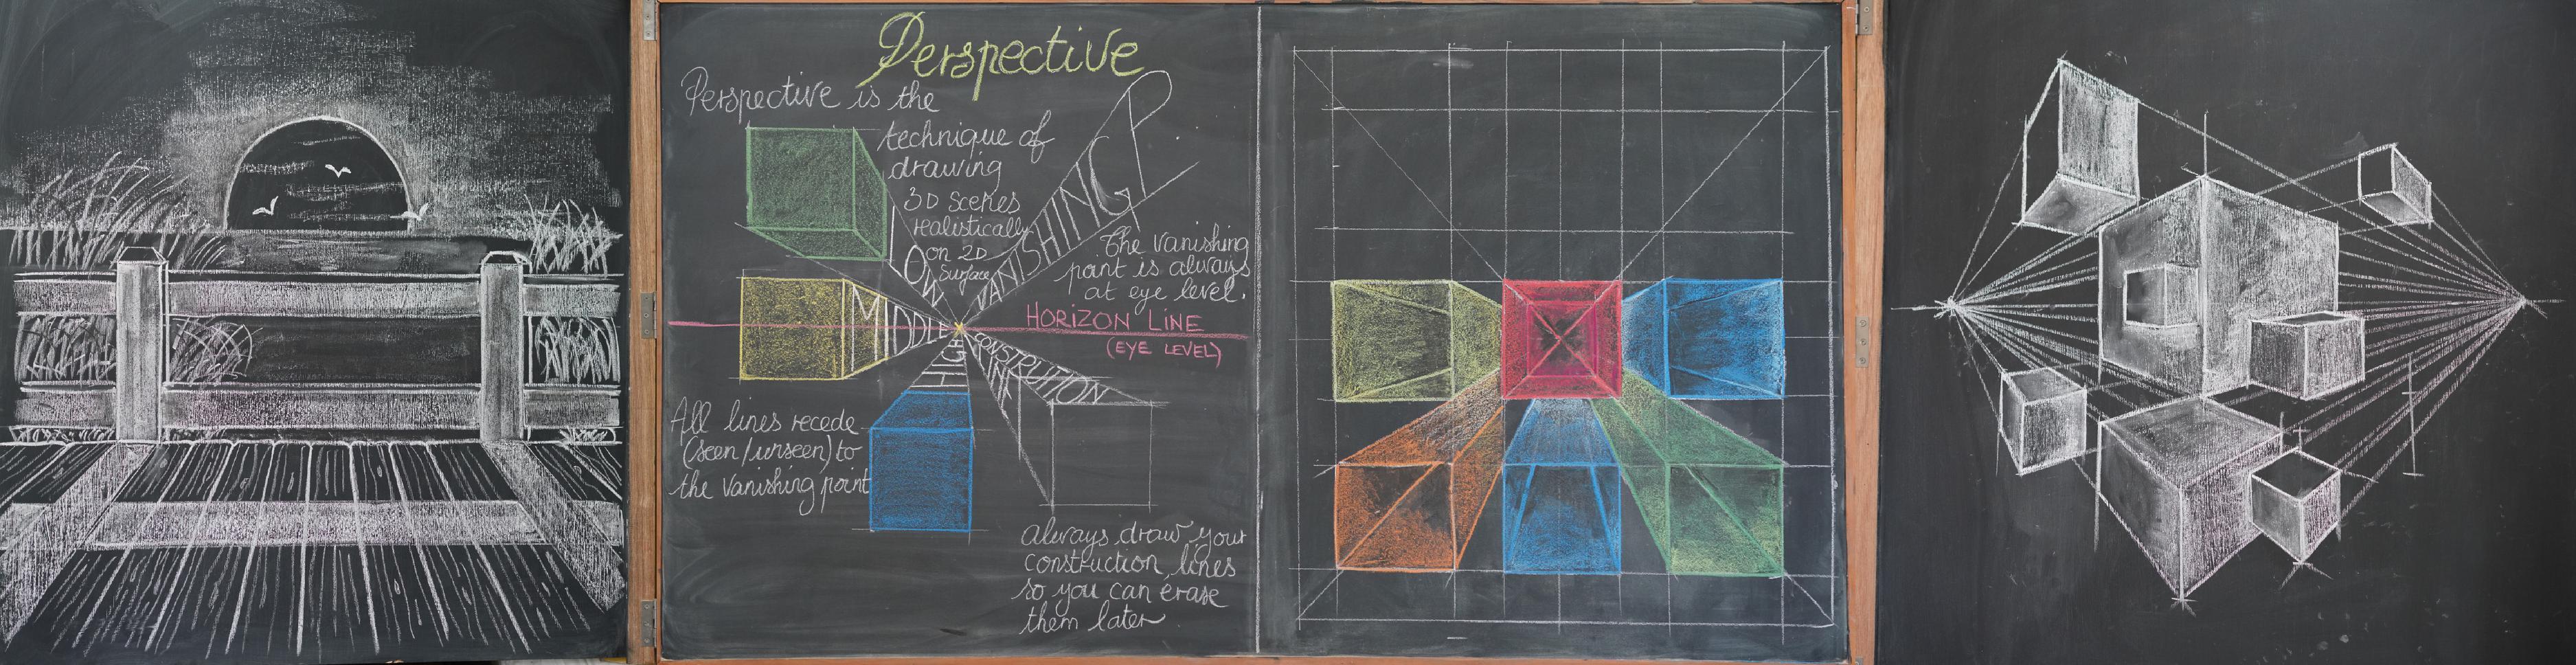 Perspective
Perspective is the
technique of
drawing
3D Scenes
realistically
on 2D
Surface
VANISHING
LOW
MIDDLE
HIGH
CONSTRUTION
The Vanishing
point is always
at eye level.
HORIZON LINE
(EYE LEVEL)
All lines recede
(seen/unseen) to
the Vanishing point
always draw your
construction lines
so you can erase
them later